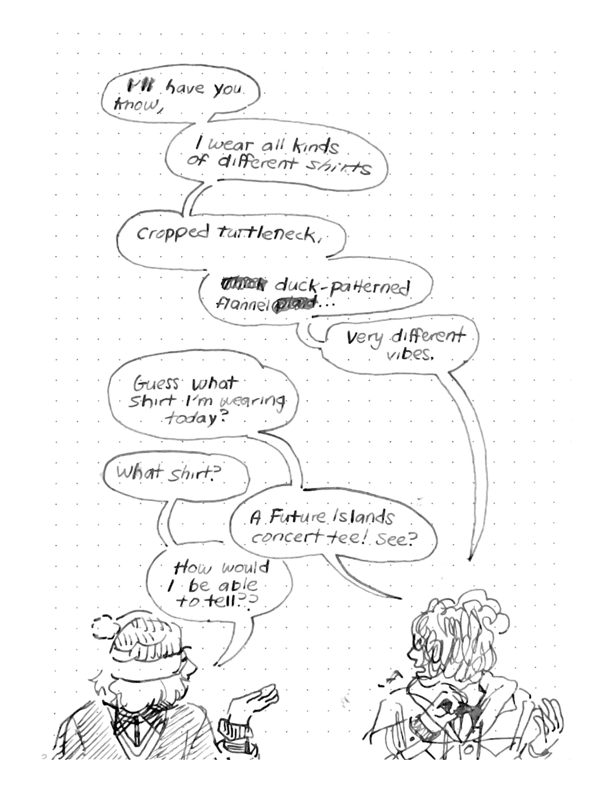 I'll have you
know,
I wear all kinds
of different shirts
cropped turtleneck,
duck-patterned
flannel...
Very different
vibes.
Guess what
shirt I'm wearing
today?
What shirt?
A Future Islands
concert tee! See?
How would
I be able
to tell??